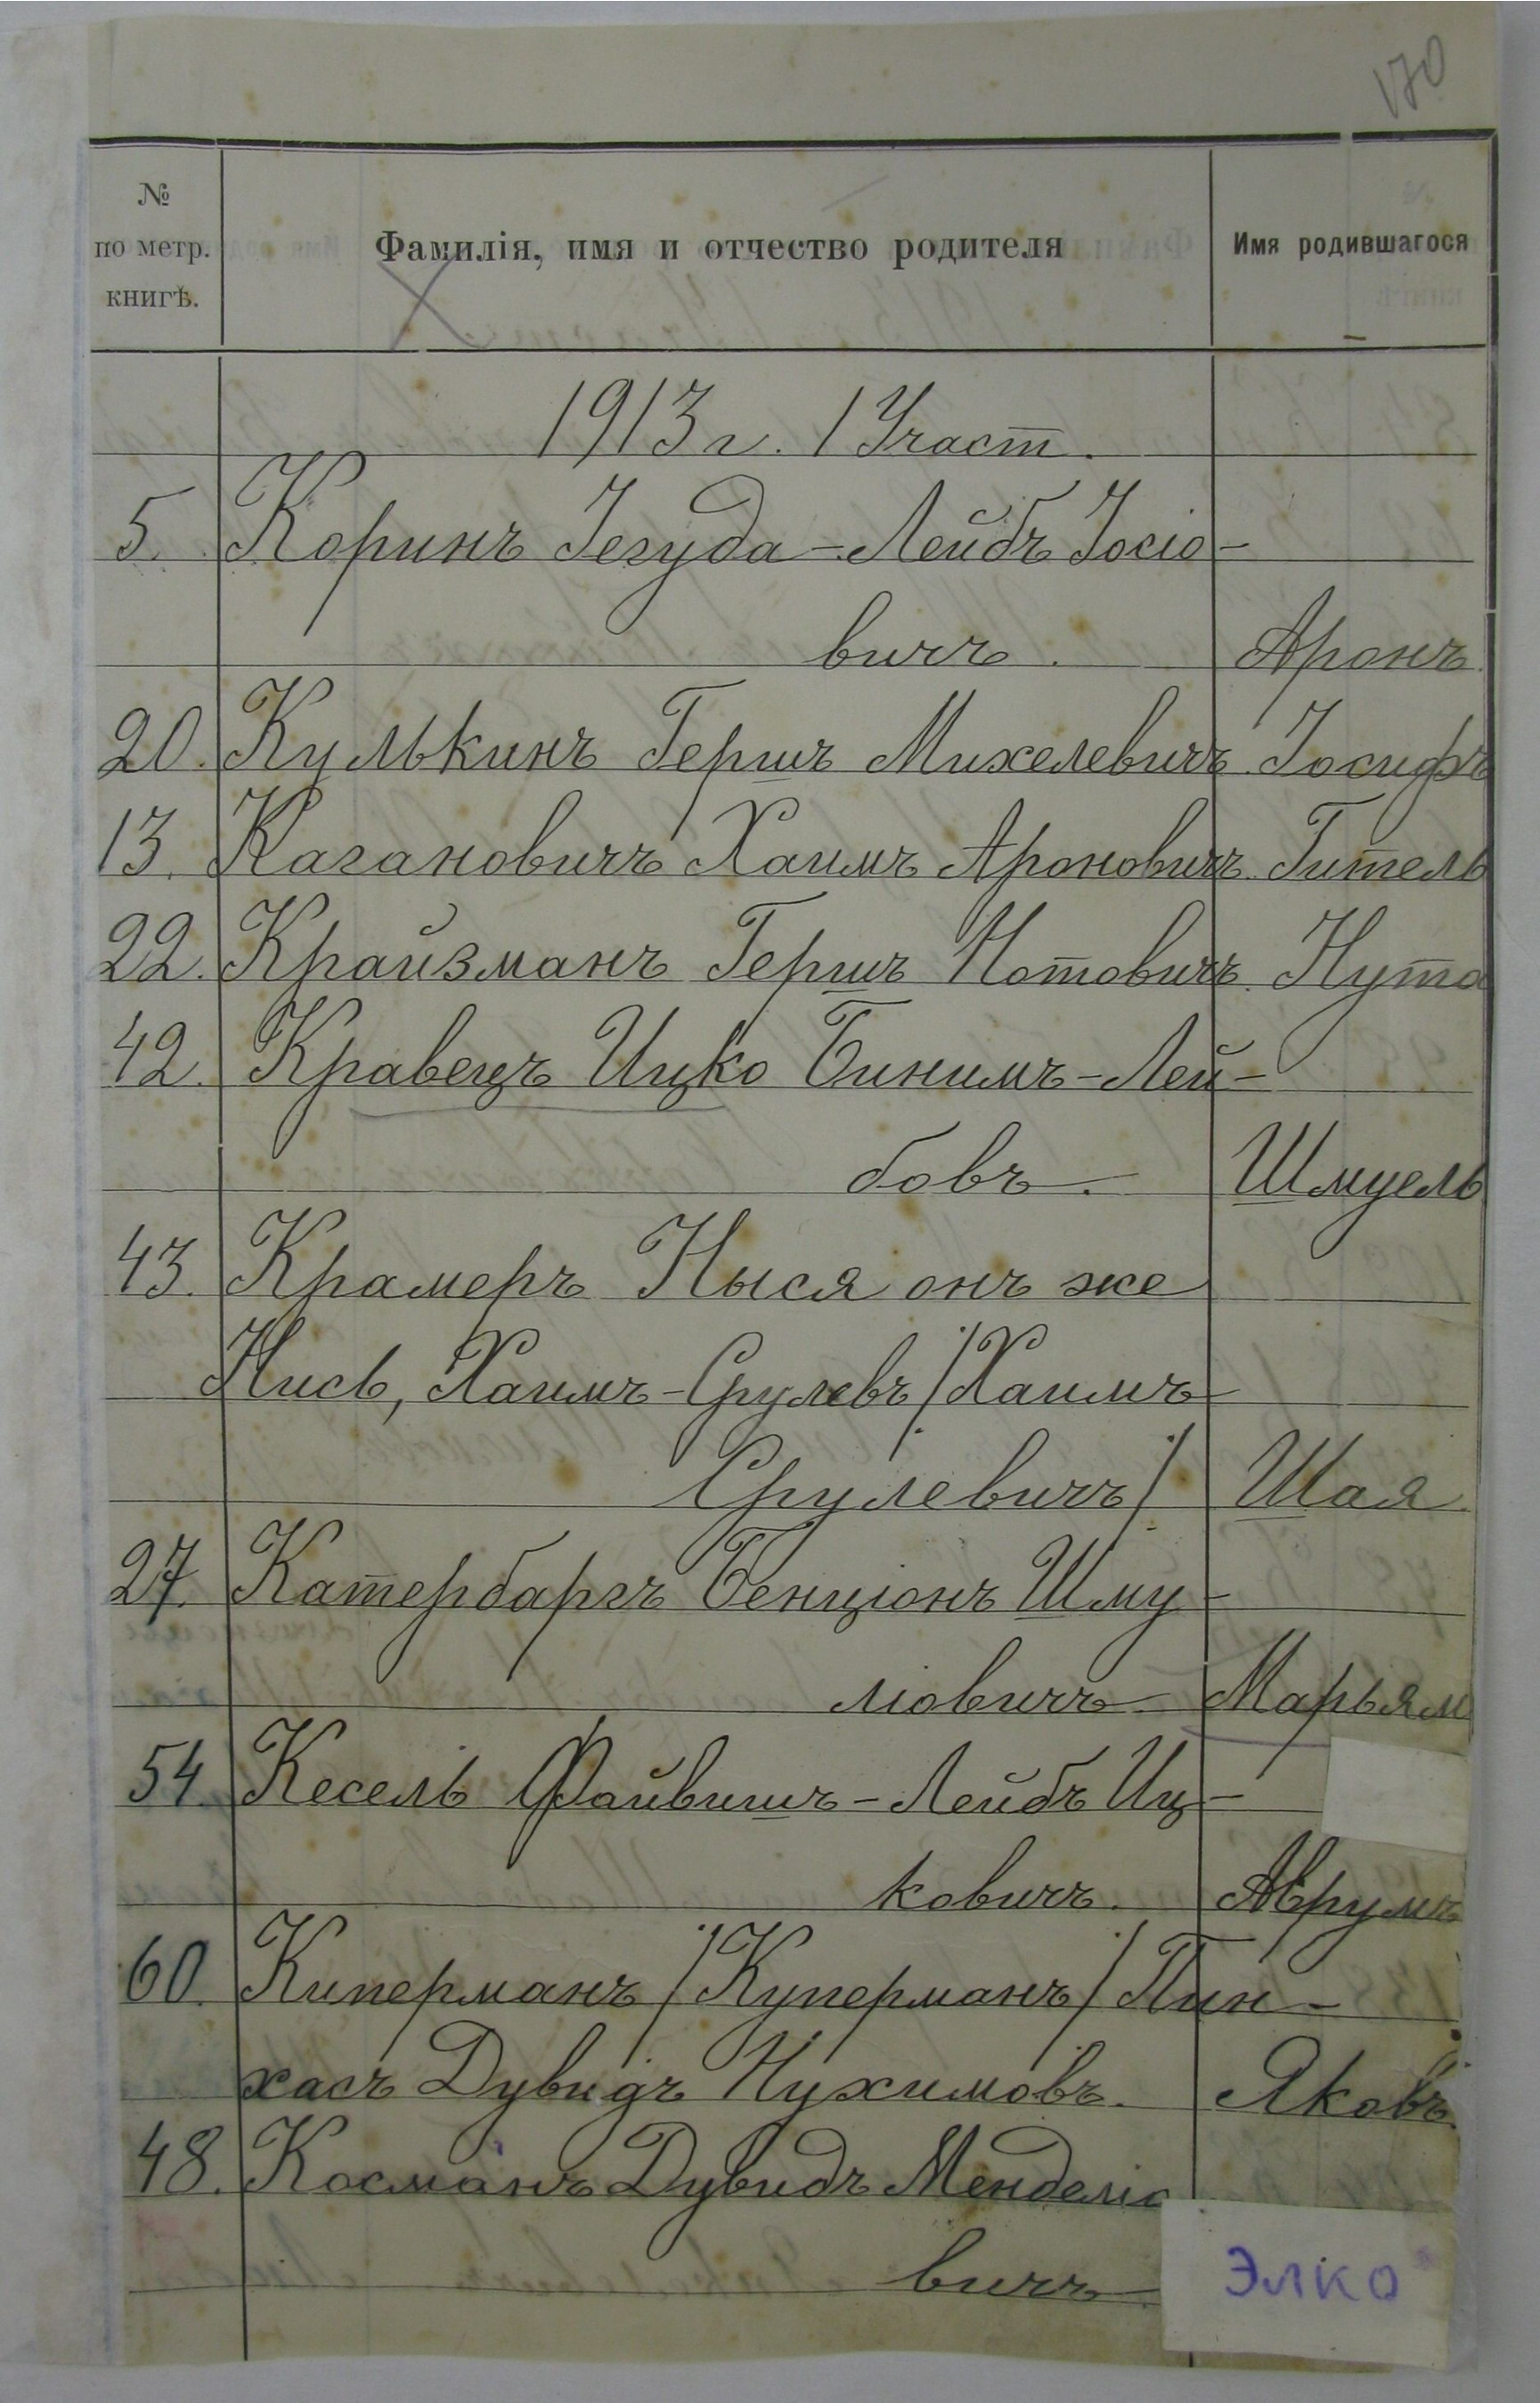 170
№
по метр.
книгѣ.
Фамилія, имя и отчество родителя
Имя родившагося
1913 г. 1 Участ.
5. Коринъ Іегуда-Лейбъ Іосіо-
вичъ. Аронъ
20. Кулькинъ Гершъ Михелевичъ. Іосифъ
13. Кагановичъ Хаимъ Ароновичъ. Гитель
22. Крайзманъ Гершъ Нотовичъ. Нута
42. Кравецъ Ицко Бинимъ-Лей-
бовъ. Шмуель
43. Крамеръ Ныся онъ же
Нись, Хаимъ-Срулевъ /Хаимъ
Срулевичъ/ Шая
27. Катербаргъ Бенціонъ Шму-
ліовичъ Марьям
54. Кесель Файвишъ-Лейбъ Иц-
ковичъ. Аврумъ
60. Киперманъ /Куперманъ/ Пин-
хасъ Дувидъ Нухимовъ. Яковъ.
48. Косманъ Дувидъ Менделіо
вичъ Элко